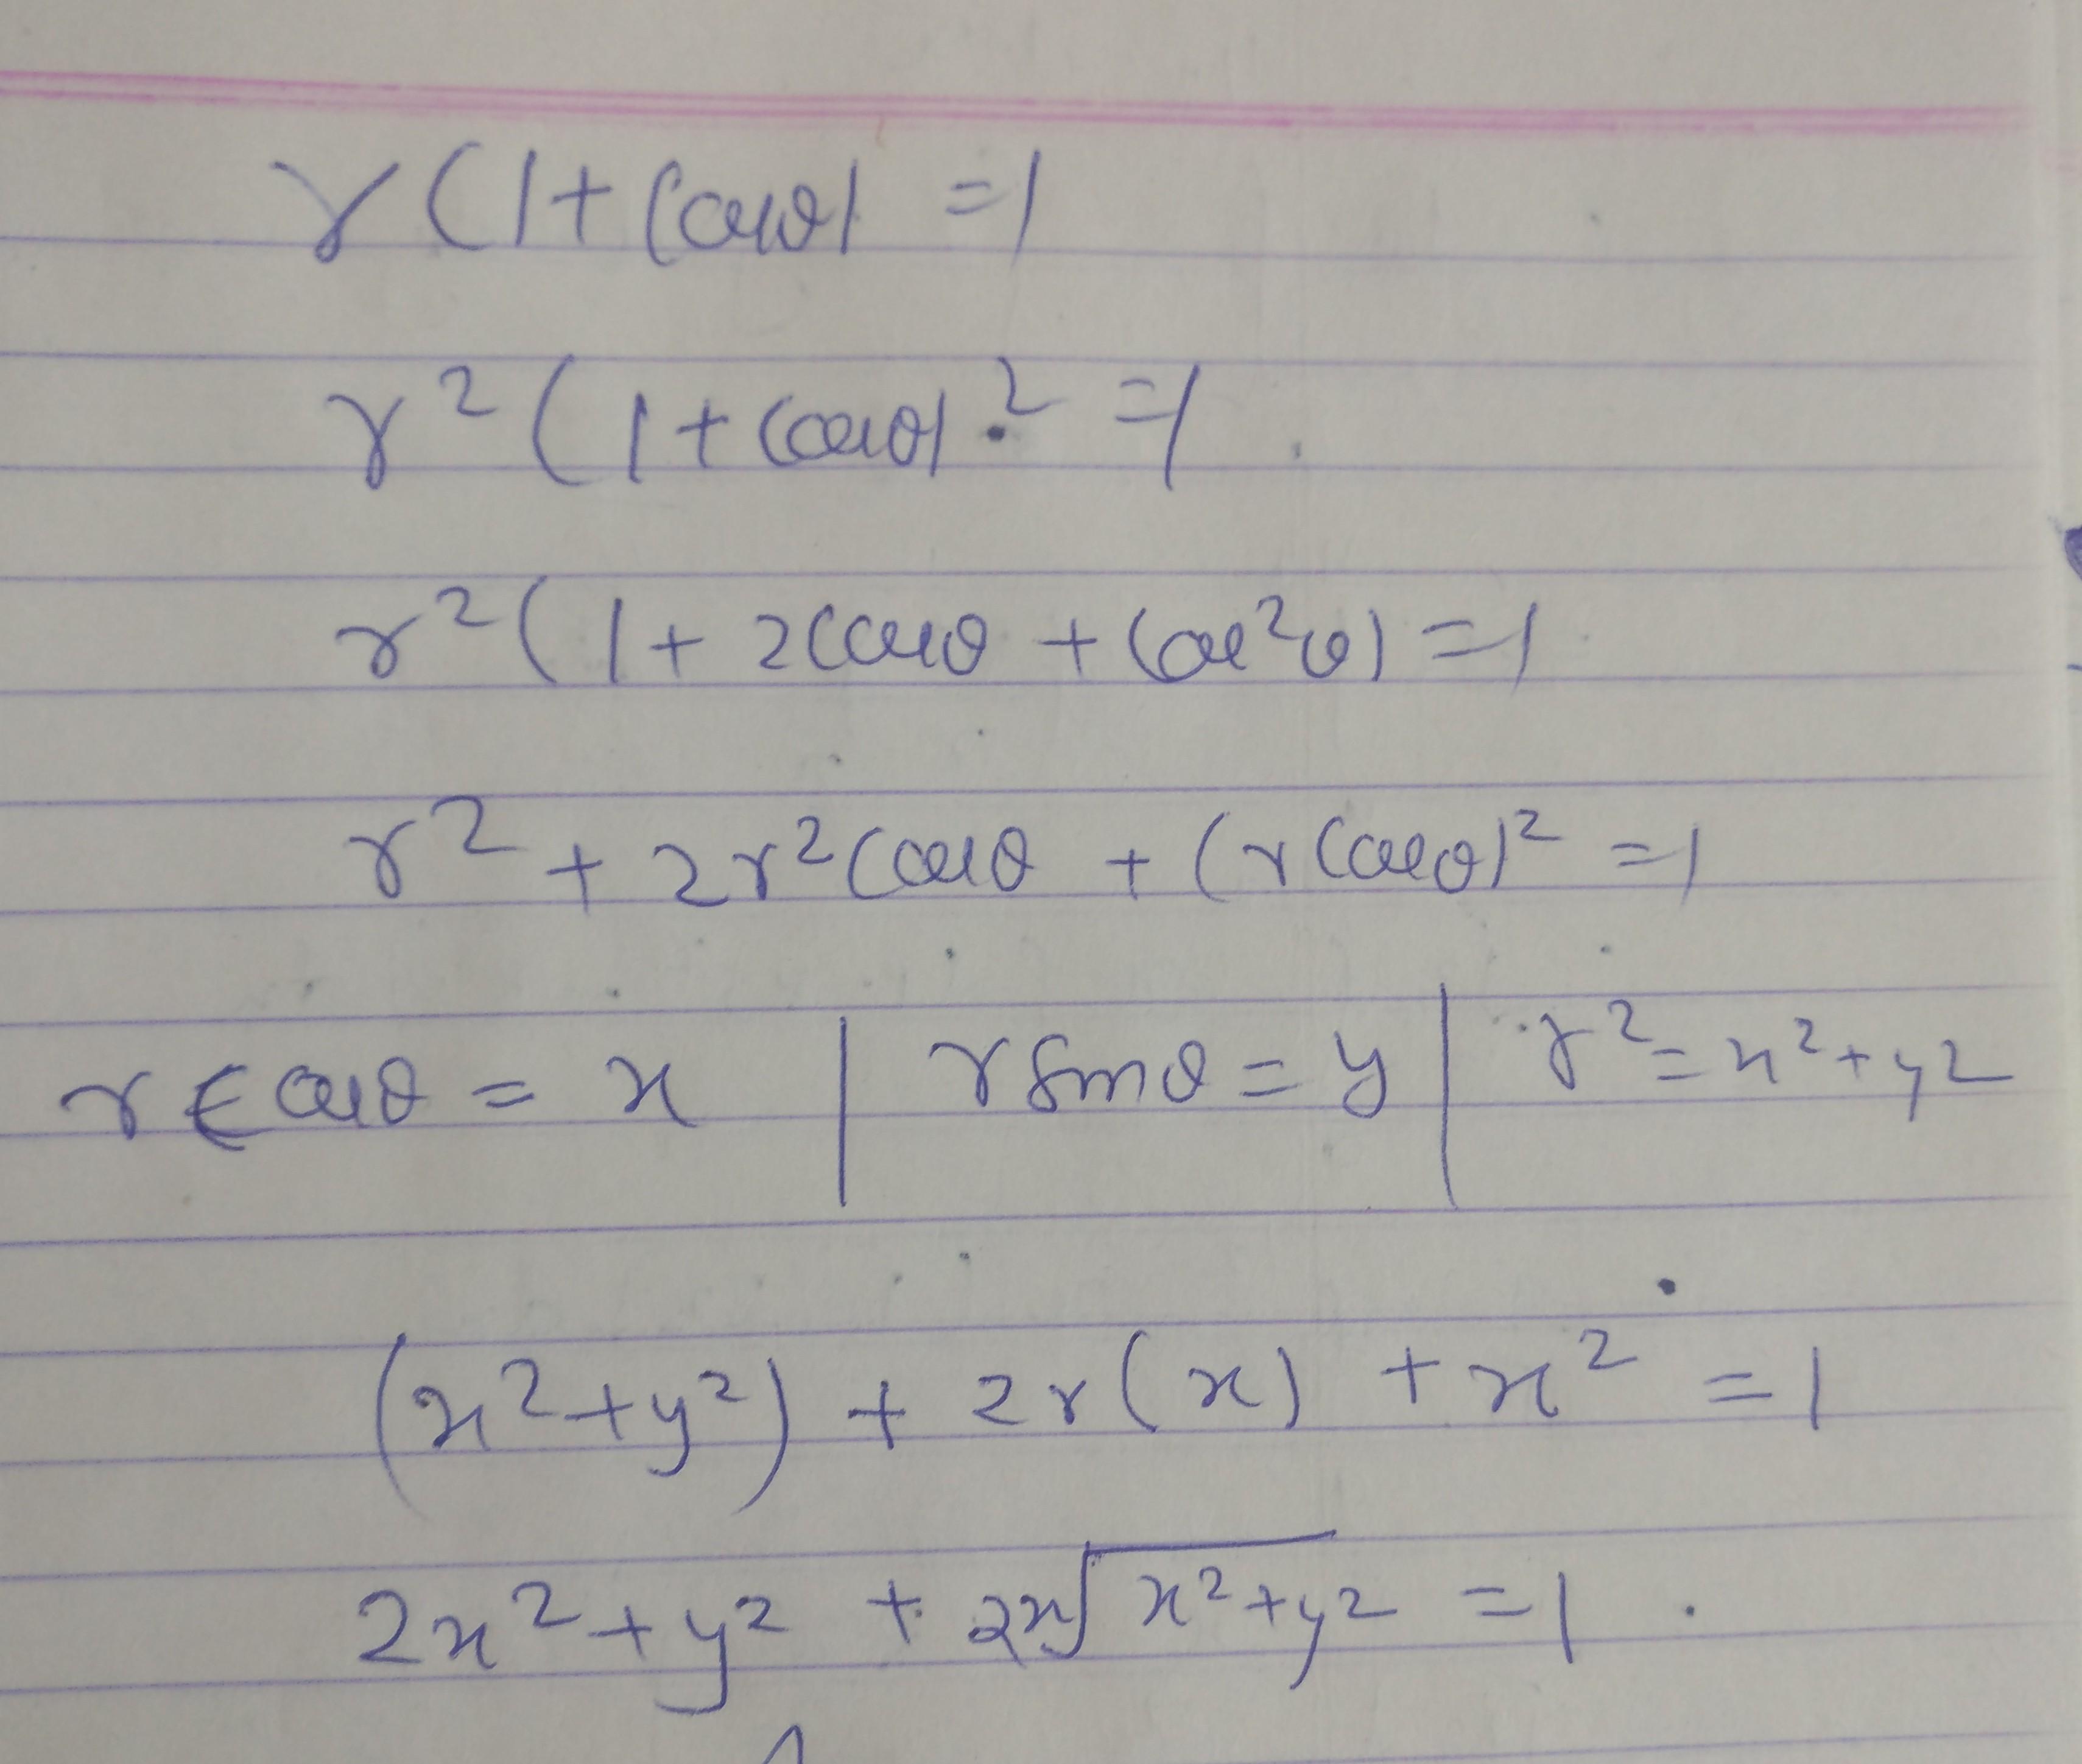 r(1+cosθ) =1
r²(1+cosθ)² =1
r²(1+2cosθ+cos²θ)=1
r²+2r²cosθ+(rcosθ)²=1
rcosθ=x | rsinθ=y | r²=x²+y²
(x²+y²)+2r(x)+x²=1
2x²+y²+2x√x²+y²=1